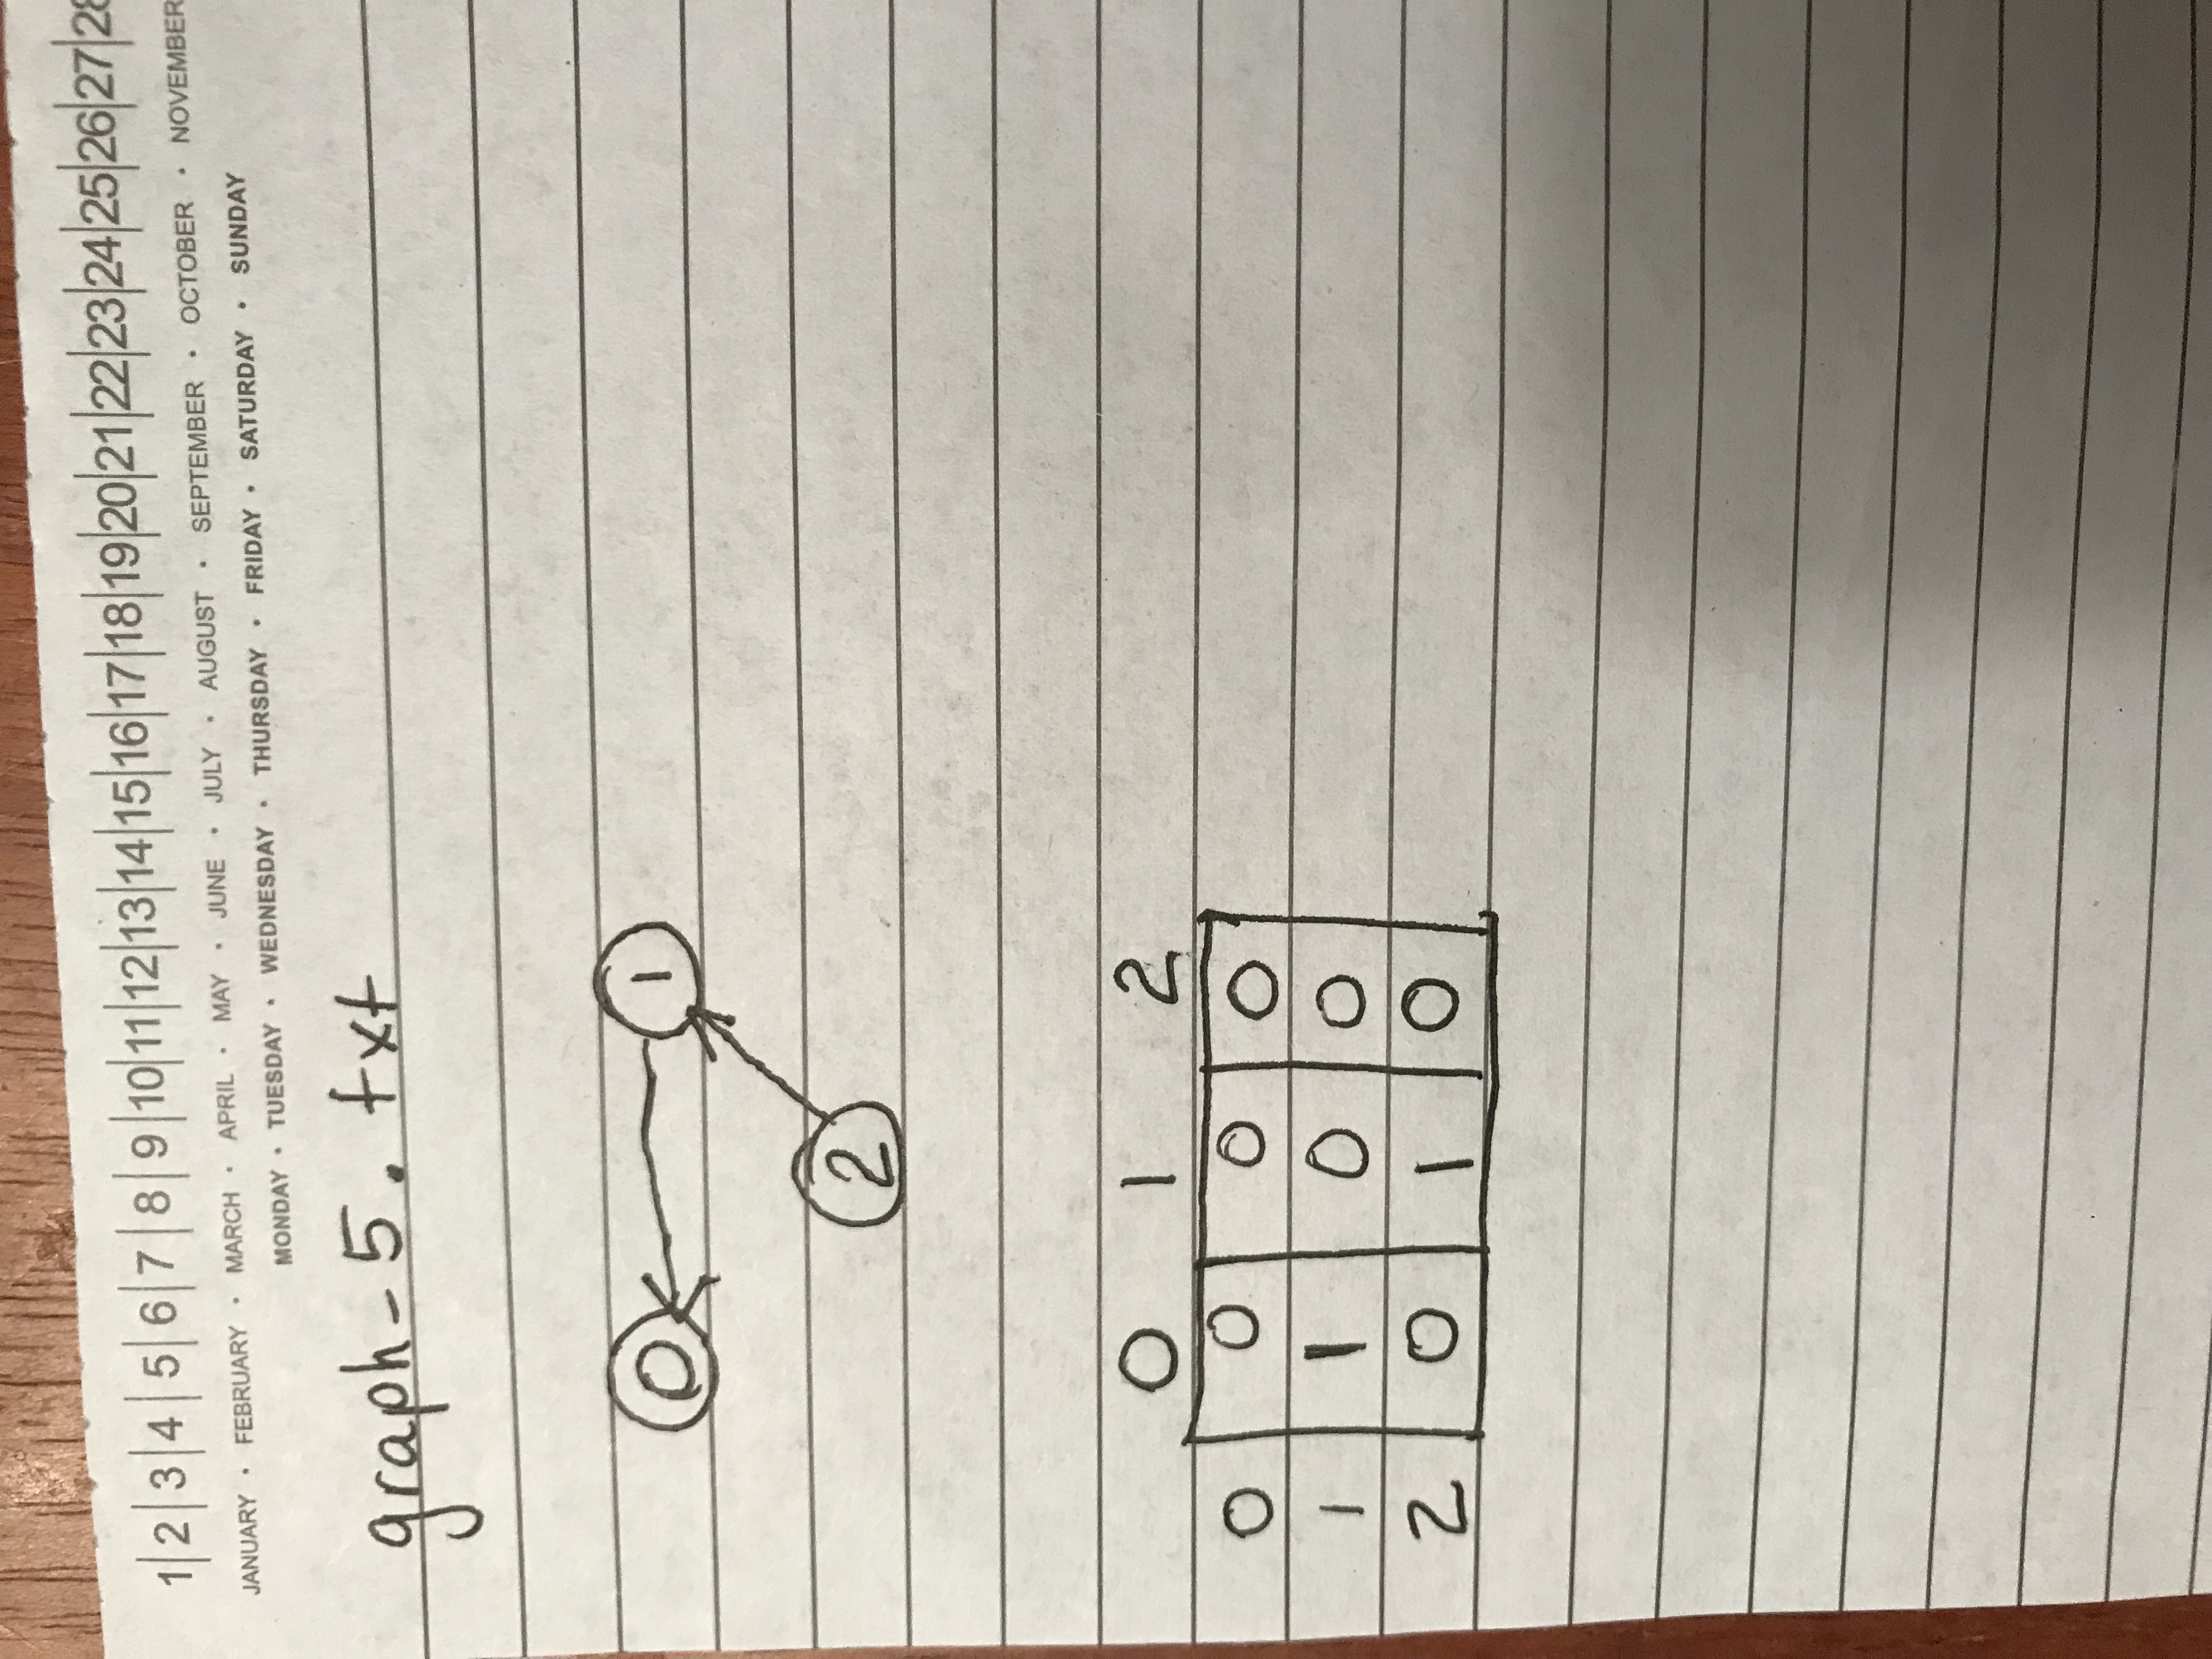 1 2 3 4 5 6 7 8 9 10 11 12 13 14 15 16 17 18 19 20 21 22 23 24 25 26 27 28
JANUARY • FEBRUARY • MARCH • APRIL • MAY • JUNE • JULY • AUGUST • SEPTEMBER • OCTOBER • NOVEMBER
MONDAY • TUESDAY • WEDNESDAY • THURSDAY • FRIDAY • SATURDAY • SUNDAY
graph-5.txt
0 1
2
0 1 2
0 0 0 0
1 1 0 0
2 0 1 0